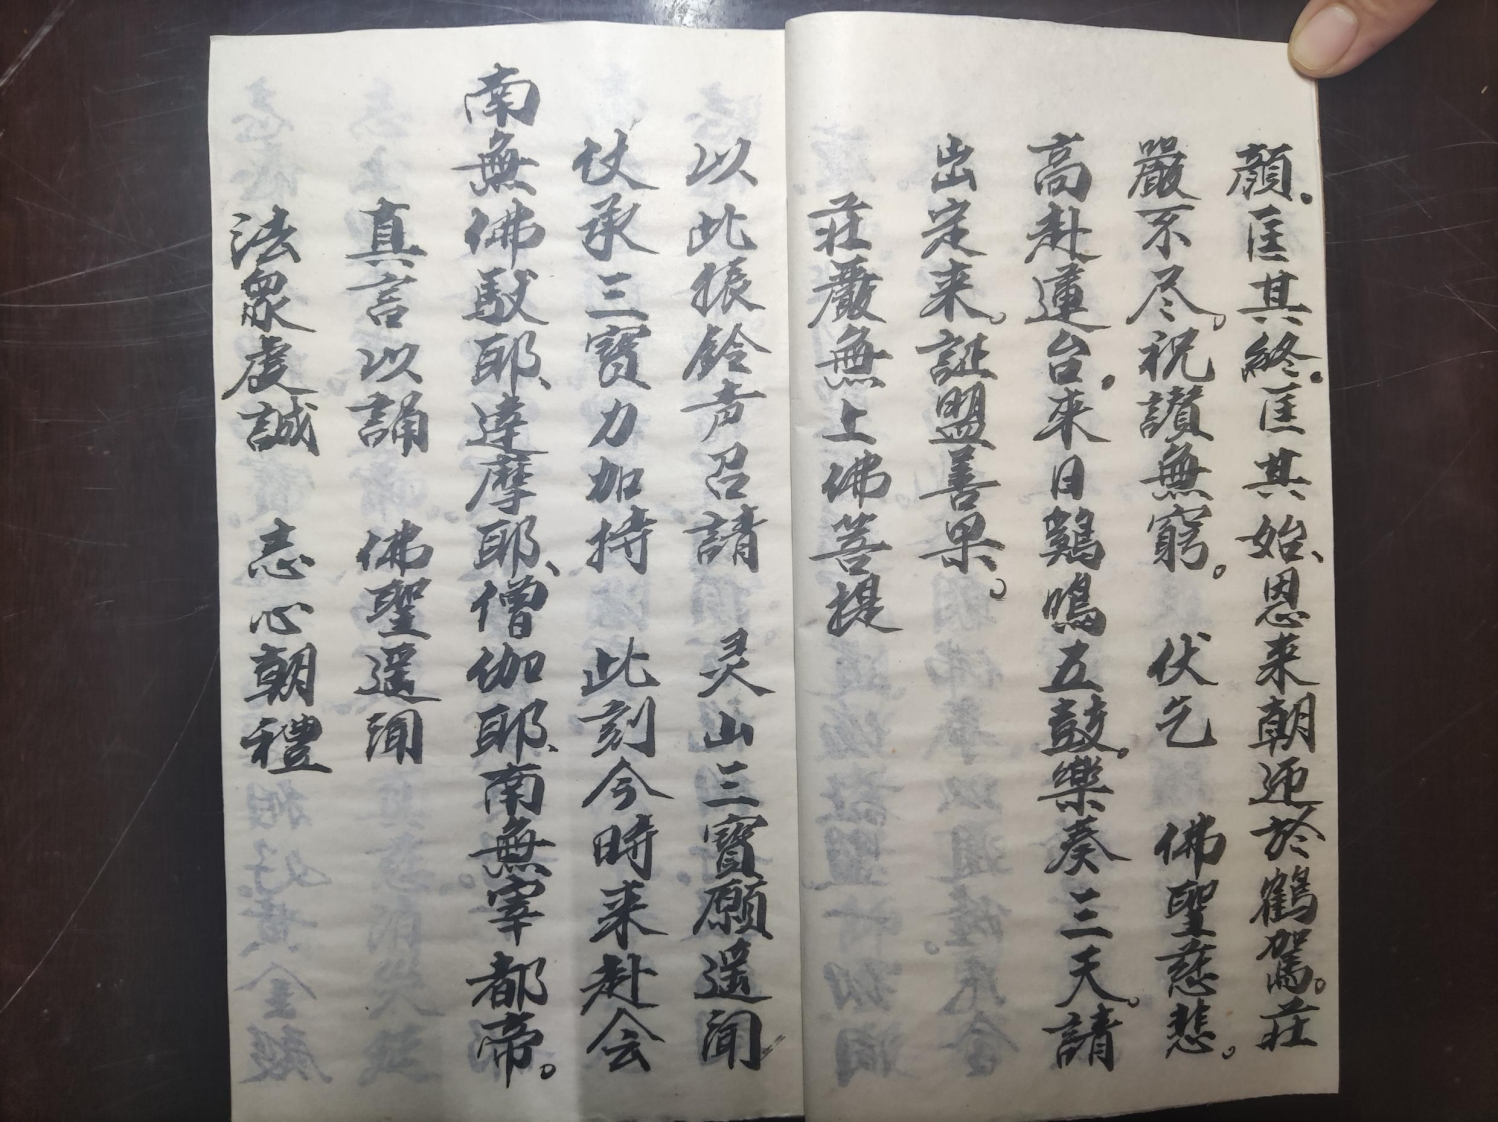 顏。匡其終。匡其始、恩来朝迎於鶴駕。莊
嚴不尽。祝讃無窮。 伏乞 佛聖慈悲。
高赴蓮台。来日鷄鳴五鼓。樂奏三天。請
出定来。証盟善果。
莊嚴無上佛菩提
以此振鈴声召請 灵山三寳願遥聞
仗承三寳力加持 此刻今時来赴会
南無佛馱耶、達摩耶、僧伽耶、南無宰都帝。
真言以誦 佛聖遥闻
法衆虔誠 志心朝禮